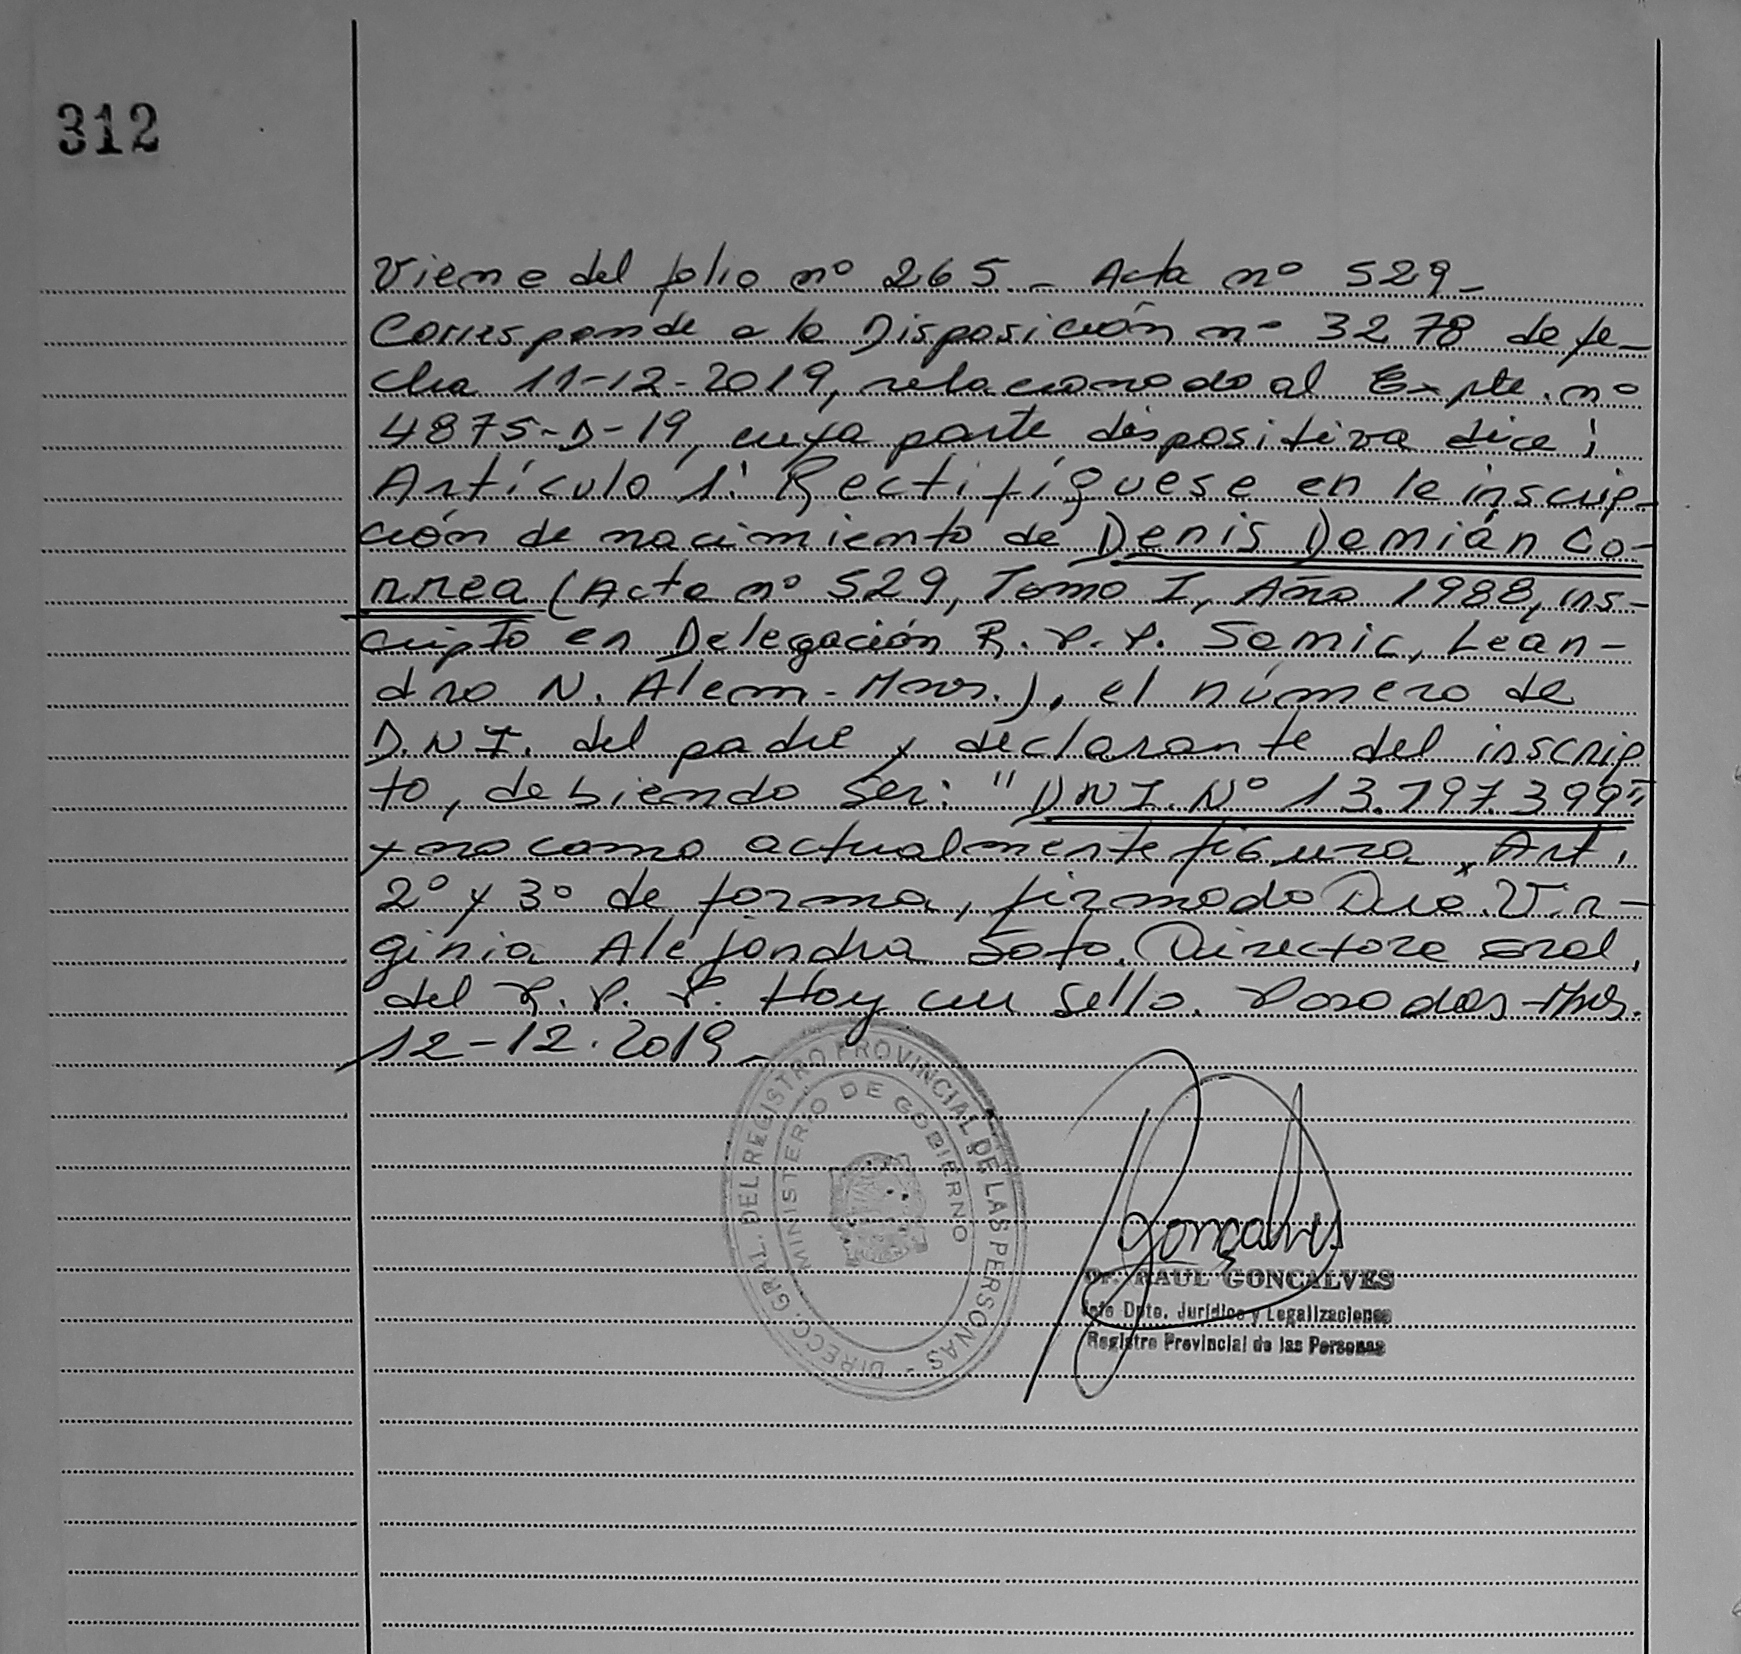 312
Viene del folio nº 265.- Acta nº 529-
Corresponde a la Disposición nº 3278 de fe-
cha 11-12-2019, relacionado al Expte. nº
4875-D-19, cuya parte dispositiva dice:
Artículo 1: Rectifíquese en la inscrip-
ción de nacimiento de Denis Demián Co-
rrea (Acta nº 529, Tomo I, Año 1988, ins-
cripto en Delegación R.P.P. Samic, Lean-
dro N. Alem-Mnes.), el número de
D.N.I. del padre y declarante del inscrip
to, debiendo ser: "DNI. Nº 13.197.399"
y no como actualmente figura, Art.
2º y 3º de forma, firmado Dra. Vir-
ginia Alejandra Soto. Directora Gral.
del R.P.P. Hay un sello. Posadas-Mnes.
12-12-2019-
DIRECC. GRAL. DEL REGISTRO PROVINCIAL DE LAS PERSONAS -
MINISTERIO DE GOBIERNO
Gonçalves
Dr. RAUL GONCALVES
Jefe Dpto. Jurídico y Legalizaciones
Registro Provincial de las Personas